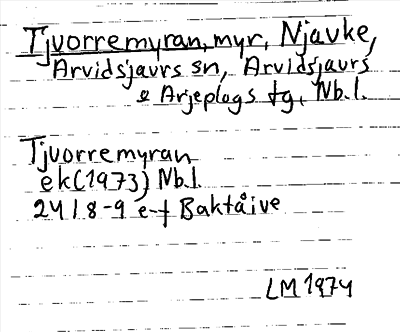 Tjvorremyran, myr, Njavke,
Arvidsjaurs sn, Arvidsjaurs
o Arjeplogs tg, Nb.l.
Tjvorremyran
ek (1973) Nb.l.
24 I 8-9 e-f Baktåive
LM 1974